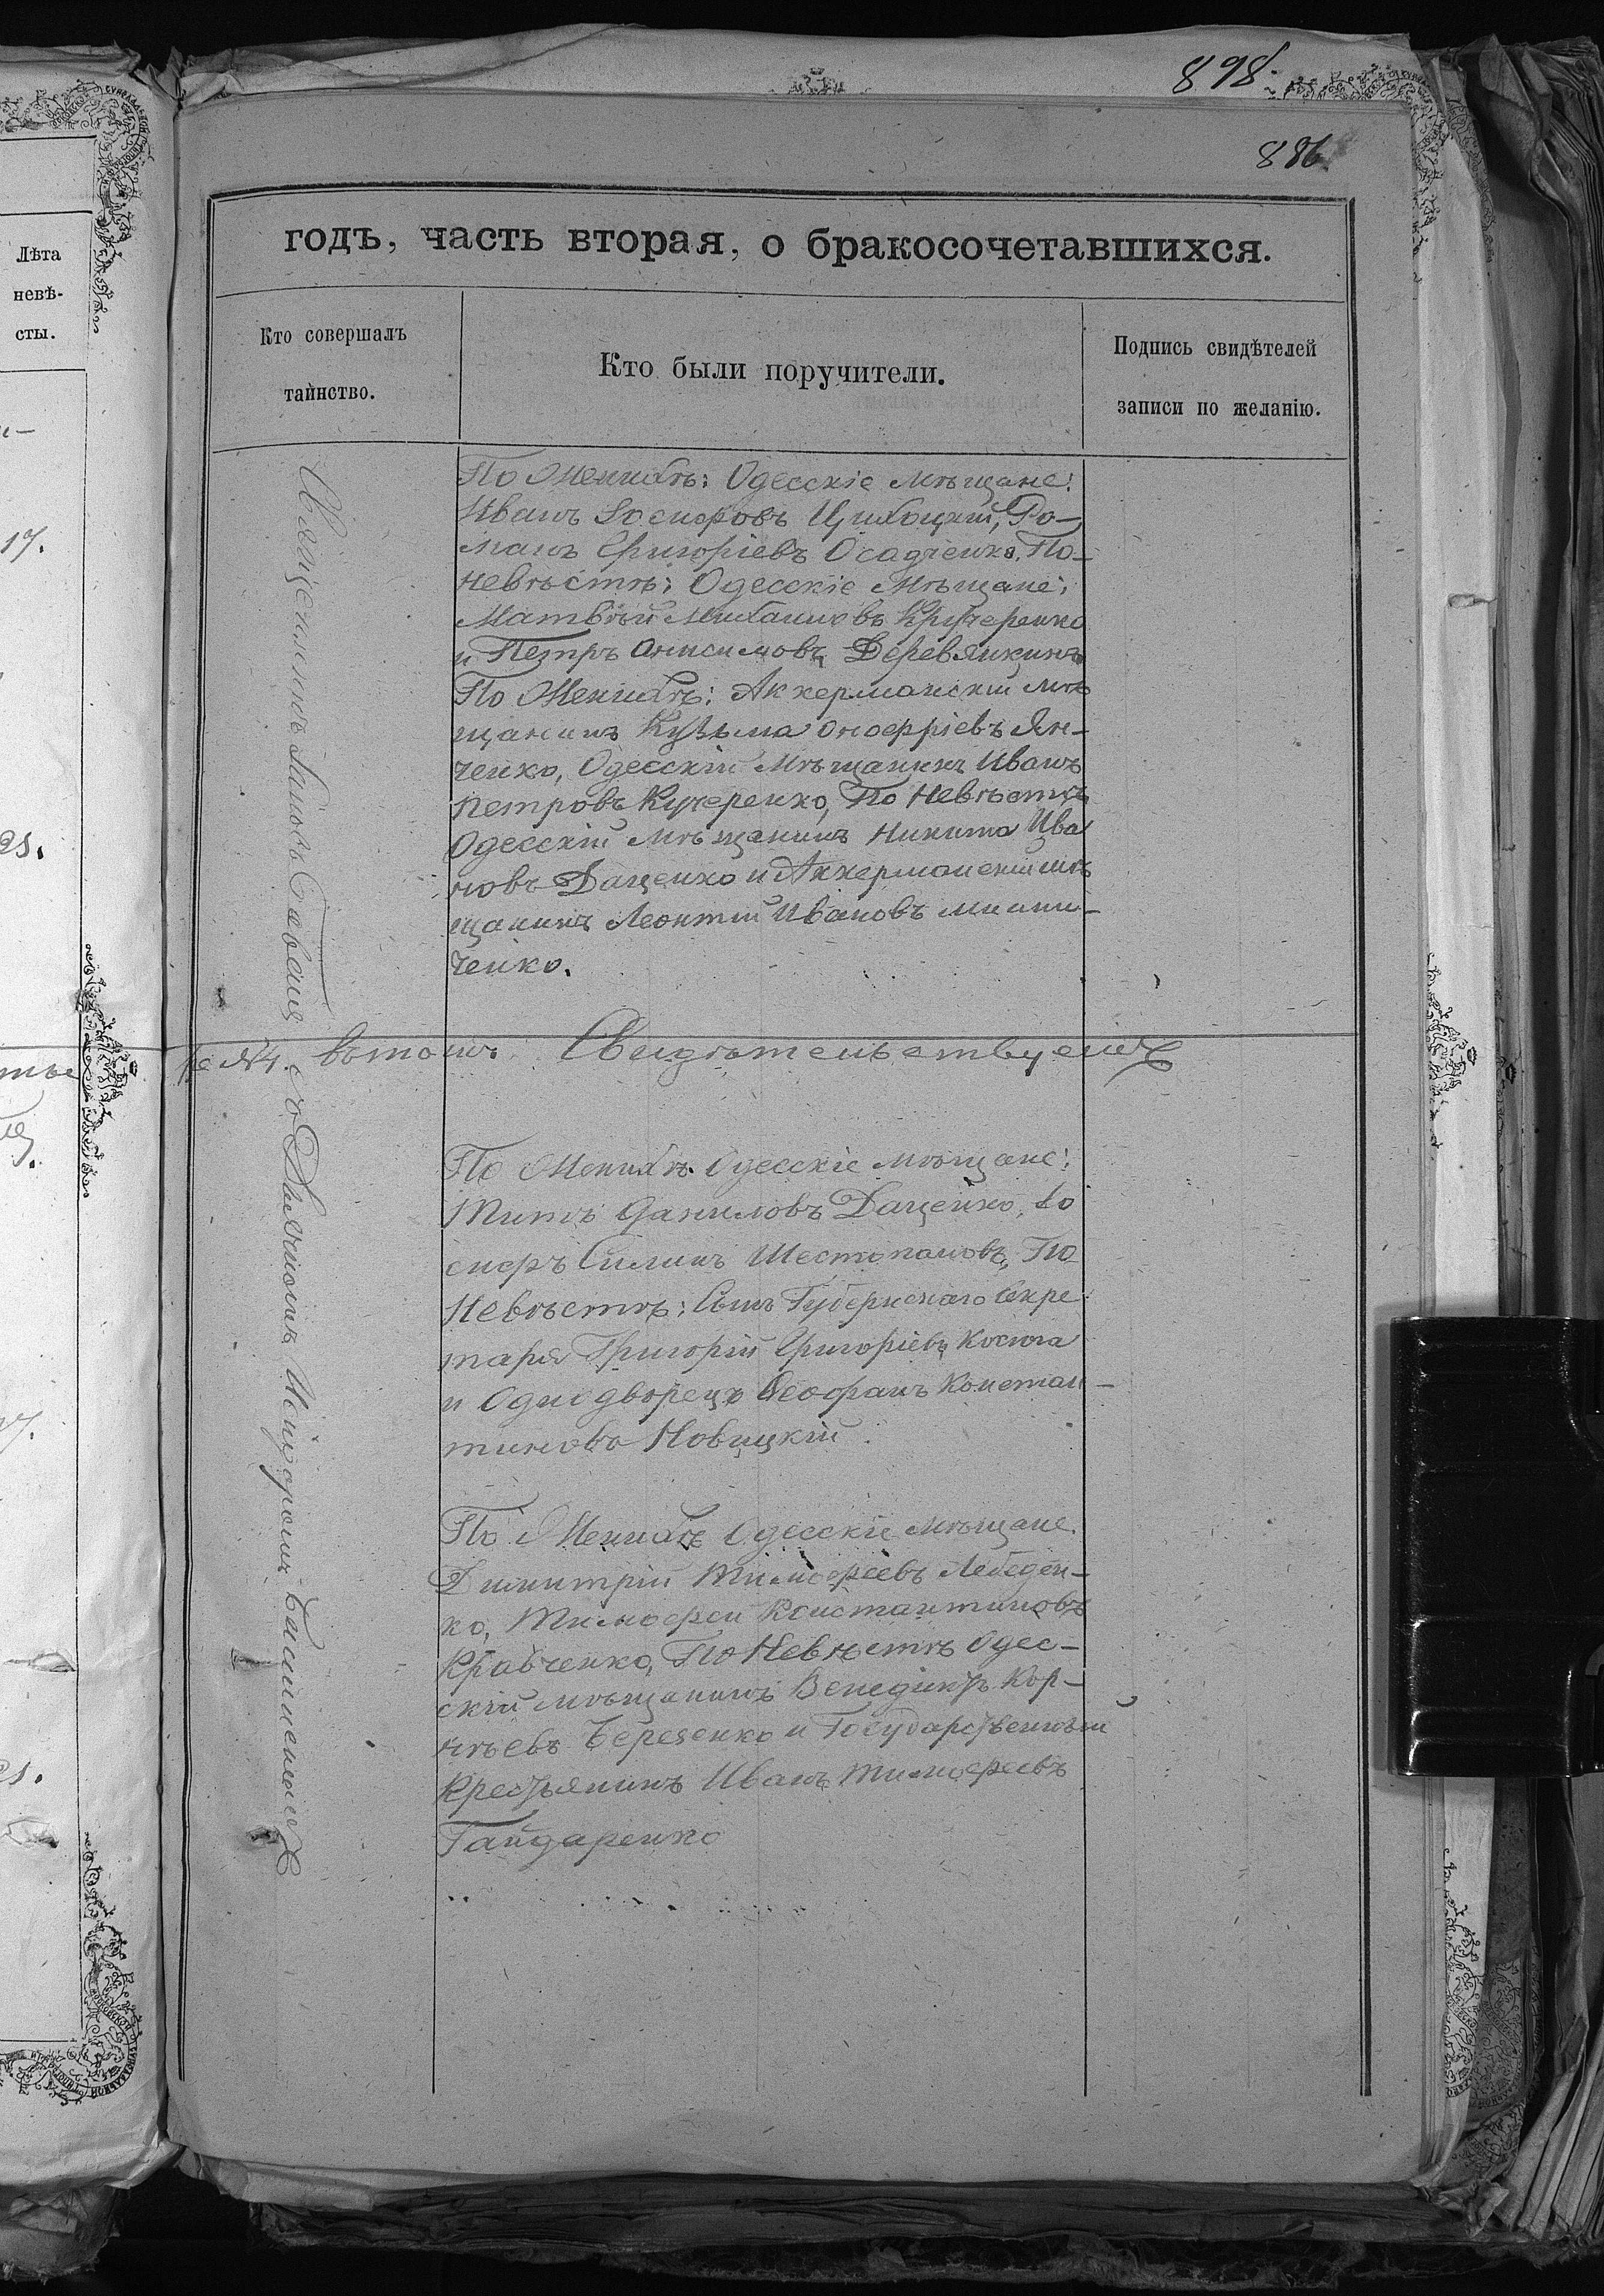 898
886
годъ, часть вторая, о бракосочетавшихся.
Лѣта
невѣ-
сты.
Кто совершалъ
таинство.
Кто были поручители.
Подпись свидѣтелей
записи по желанію.
17.
По Женихѣ: Одесскіе мѣщане:
Иванъ Іосифовъ Ро-
манъ Григоріевъ Осадченко, По-
невѣстѣ: Одесскіе Мѣщане:
Матвѣй Михаиловъ Кучеренко
и Петръ Онисимовъ Деревянкинъ
По Женихѣ: Аккерманскій мѣ
щанинъ Кузьма Онофріевъ Ян-
ченко, Одесскій Мѣщанинъ Иванъ
Петровъ Кучеренко, По Невѣстѣ
Одесскій мѣщанинъ Никита Ива
новъ Даценко и Аккерманскій мѣ
щанинъ Леонтій Ивановъ
ченко.
Священникъ Савва
въ томъ Свидѣтельствуемъ
съ Діакономъ
По Женихѣ Одесскіе мѣщане:
Титъ Даниловъ Даценко, Іо
сифъ Силинъ Шестопаловъ, По
Невѣстѣ: Сынъ Губернскаго Секре
таря Григорій Григоріевъ Косюга
и Однодворецъ Феофанъ Констан-
тиновъ Новицкій.
По Женихѣ Одесскіе мѣщане
Димитрій Тимофеевъ Лебеден-
ко, Тимофей Константиновъ
Кравченко, По Невѣстѣ Одес-
скій мѣщанинъ Венедиктъ Кор-
нѣевъ Березенко и Государственный
Крестьянинъ Иванъ Тимофеевъ
Гайдаренко